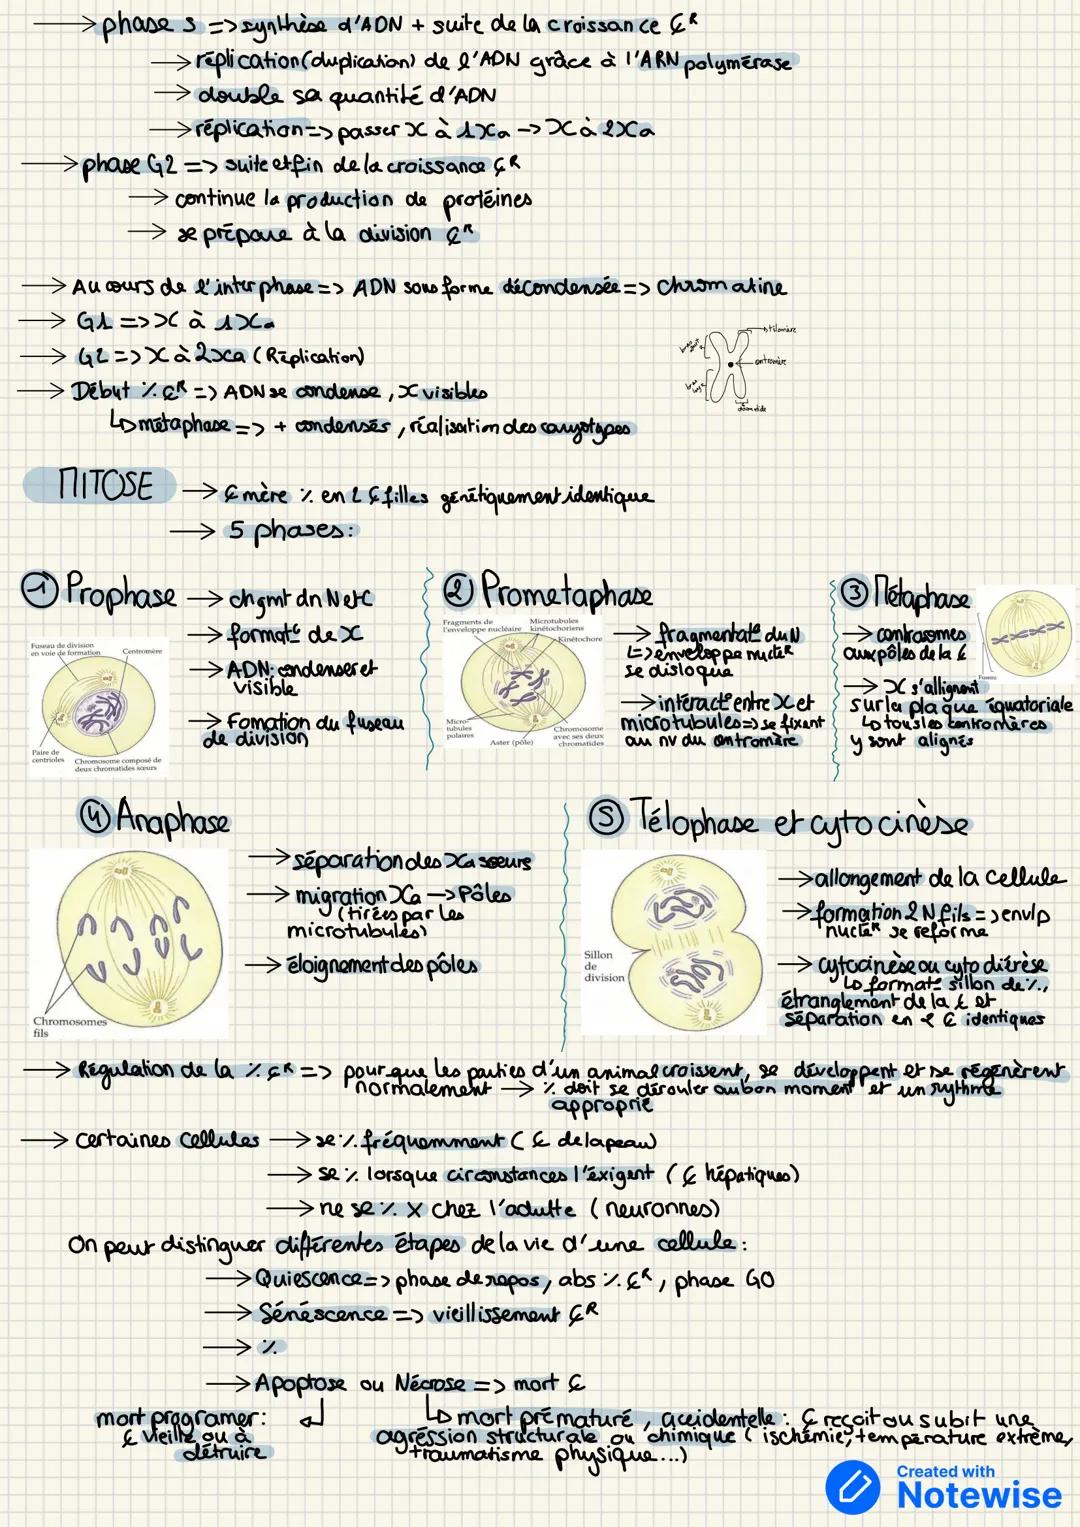 → phase S => synthèse d'ADN + suite de la croissance ȼR
→ réplication (duplication) de l'ADN grâce à l'ARN polymérase
→ double sa quantité d'ADN
→ réplication => passer X à 1Xa -> X à 2Xa
→ phase G2 => suite et fin de la croissance ȼR
→ continue la production de protéines
→ se prépare à la division ȼR
→ Au cours de l'interphase => ADN sous forme décondensée => chromatine
→ G1 => X à 1Xa
→ G2 => X à 2Xa (Réplication)
→ Début % ȼR => ADN se condense, X visibles
↳ métaphase => + condensés, réalisation des caryotypes
télomère
centromère
MITOSE → ȼ mère % en 2 ȼ filles génétiquement identique
→ 5 phases:
① Prophase
→ chgmt dn N et C
→ formatº de X
→ ADN: condenser et
visible
→ Fomation du fuseau
de division
Fuseau de division
en voie de formation
Centromère
Paire de
centrioles
Chromosome composé de
deux chromatides sœurs
② Prometaphase
Fragments de
l'enveloppe nucléaire
Microtubules
kinétochoriens
Kinétochore
Micro-
tubules
polaires
Aster (pôle)
Chromosome
avec ses deux
chromatides
→ fragmentatº du N
↳ enveloppe nucléR
se disloque
→ intéractº entre X et
microtubules => se fixant
au nv du centromère
③ Métaphase
→ centrosomes
aux pôles de la ȼ
→ X s'allignent
sur la plaque équatoriale
↳ tous les centromères
y sont alignés
Fuseau
④ Anaphase
Chromosomes
fils
→ séparation des Xa sœurs
→ migration Xa -> Pôles
(tirées par les
microtubules)
→ éloignement des pôles
⑤ Télophase et cytocinèse
Sillon
de
division
→ allongement de la cellule
→ formation 2 N fils => envlp
nucléR se reforme
→ cytocinèse ou cytodiérèse
↳ formatº sillon de %,
étranglement de la ȼ et
séparation en 2 ȼ identiques
→ Régulation de la % ȼR => pour que les parties d'un animal croissent, se développent et se régénèrent
normalement → % doit se dérouler au bon moment et un rythme
approprié
→ certaines cellules → se % fréquemment (ȼ de la peau)
→ se % lorsque circonstances l'éxigent (ȼ hépatiques)
→ ne se % X chez l'adulte (neuronnes)
On peut distinguer différentes étapes de la vie d'une cellule:
→ Quiescence => phase de repos, abs % ȼR, phase G0
→ Sénéscence => vieillissement ȼR
→ %
→ Apoptose ou Nécrose => mort ȼ
mort programer:
ȼ vieille ou à
détruire
↳ mort prématuré, accidentelle: ȼ reçoit ou subit une
agréssion structurale ou chimique (ischémie, température extrême,
traumatisme physique...)
Created with
Notewise